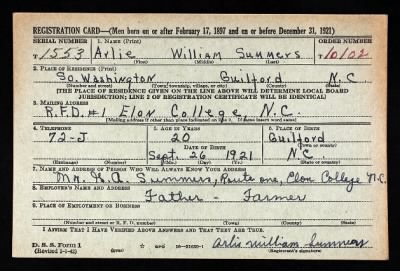 REGISTRATION CARD—(Men born on or after February 17, 1897 and on or before December 31, 1921)
SERIAL NUMBER 1. NAME (Print) ORDER NUMBER
T 1553 Arlie William Summers 10102
(First) (Middle) (Last)
2. PLACE OF RESIDENCE (Print)
So. Washington Guilford N.C.
(Number and street) (Town, township, village, or city) (County) (State)
[THE PLACE OF RESIDENCE GIVEN ON THE LINE ABOVE WILL DETERMINE LOCAL BOARD
JURISDICTION; LINE 2 OF REGISTRATION CERTIFICATE WILL BE IDENTICAL]
3. MAILING ADDRESS
R.F.D. #1 Elon College, N.C.
[Mailing address if other than place indicated on line 2. If same insert word same]
4. TELEPHONE 5. AGE IN YEARS 6. PLACE OF BIRTH
72-J 20 Guilford
DATE OF BIRTH (Town or county)
Sept. 26 1921 N.C.
(Exchange) (Number) (Mo.) (Day) (Yr.) (State or country)
7. NAME AND ADDRESS OF PERSON WHO WILL ALWAYS KNOW YOUR ADDRESS
Mr. A. Summers, Route one, Elon College N.C.
8. EMPLOYER'S NAME AND ADDRESS
Father - Farmer
9. PLACE OF EMPLOYMENT OR BUSINESS
(Number and street or R. F. D. number) (Town) (County) (State)
I AFFIRM THAT I HAVE VERIFIED ABOVE ANSWERS AND THAT THEY ARE TRUE.
D. S. S. Form 1
(Revised 1-1-42) (over) Arlie William Summers